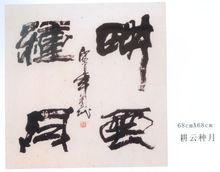 耕雲
種月
68cm×68cm
耕云种月